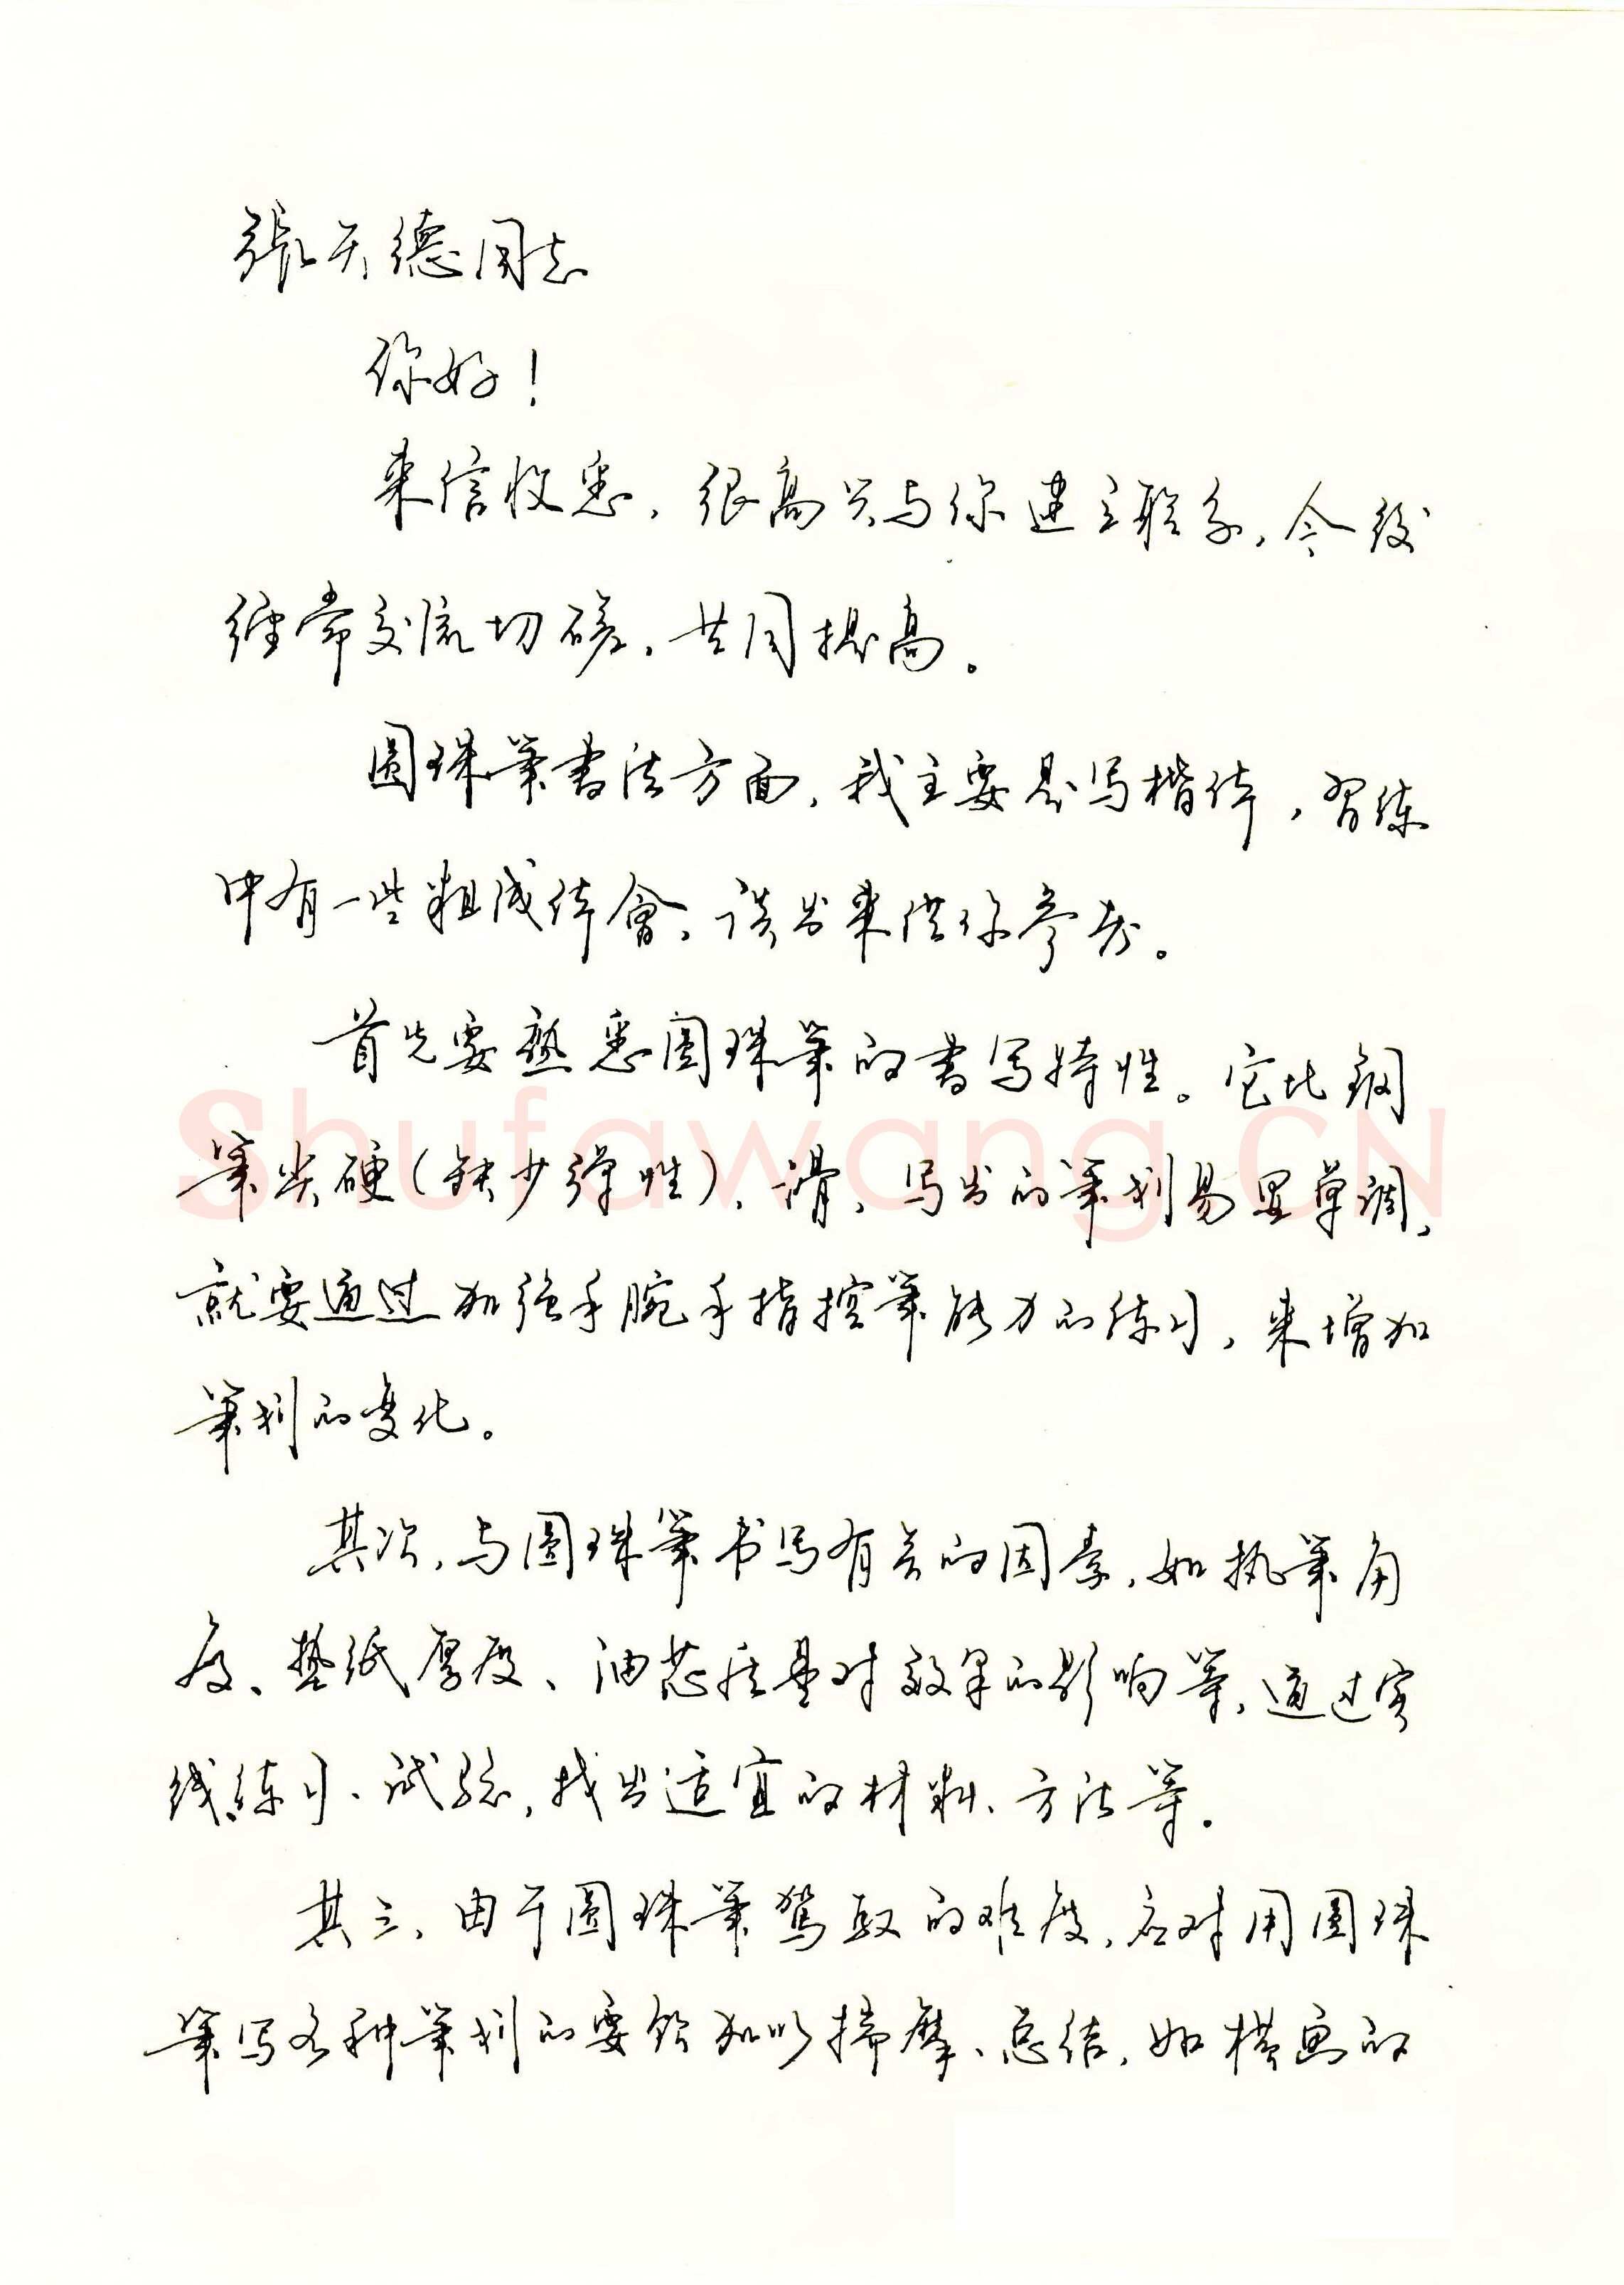 張天德同志
你好！
来信收悉，很高兴与你建立联系，今后
经常交流切磋，共同提高。
圆珠笔书法方面，我主要是写楷体，习练
中有一些粗浅体會，谈出来供你参考。
首先要熟悉圆珠笔的书写特性。它比钢
笔尖硬（缺少弹性）、滑，写出的笔划易显单调，
就要通过加强手腕手指控笔能力的练习，来增加
笔划的变化。
其次，与圆珠笔书写有关的因素，如执笔角
度、垫纸厚度、油芯质量对效果的影响等，通过实
践练习、试验，找出适宜的材料、方法等。
其三、由于圆珠笔驾驭的难度，应对用圆珠
笔写各种笔划的要领加以揣摩、总结，如横画的
Shufawang.CN